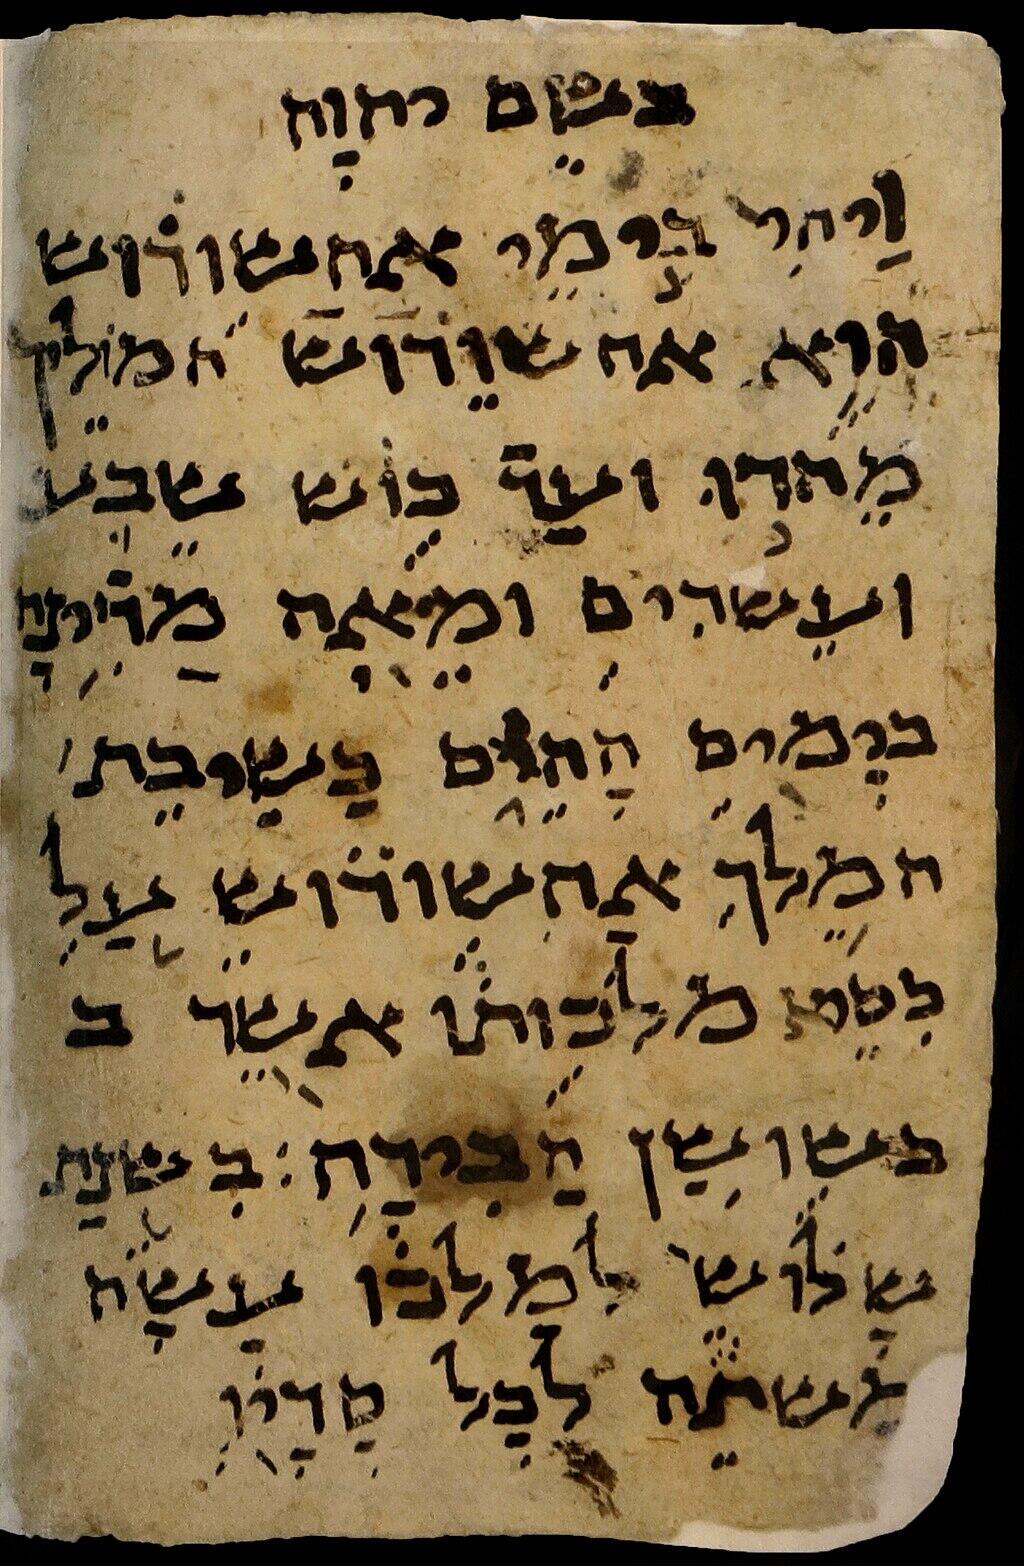 בשם יהוה
ויהי בימי אחשורוש
הוא אחשורוש המולך
מהדו ועד כוש שבע
ועשרים ומאה מדינה
בימים ההם כשיבת
המלך אחשורוש על
כסא מלכותו אשר ב
בשושן הבירה: בשנת
שלוש למלכו עשה
משתה לכל